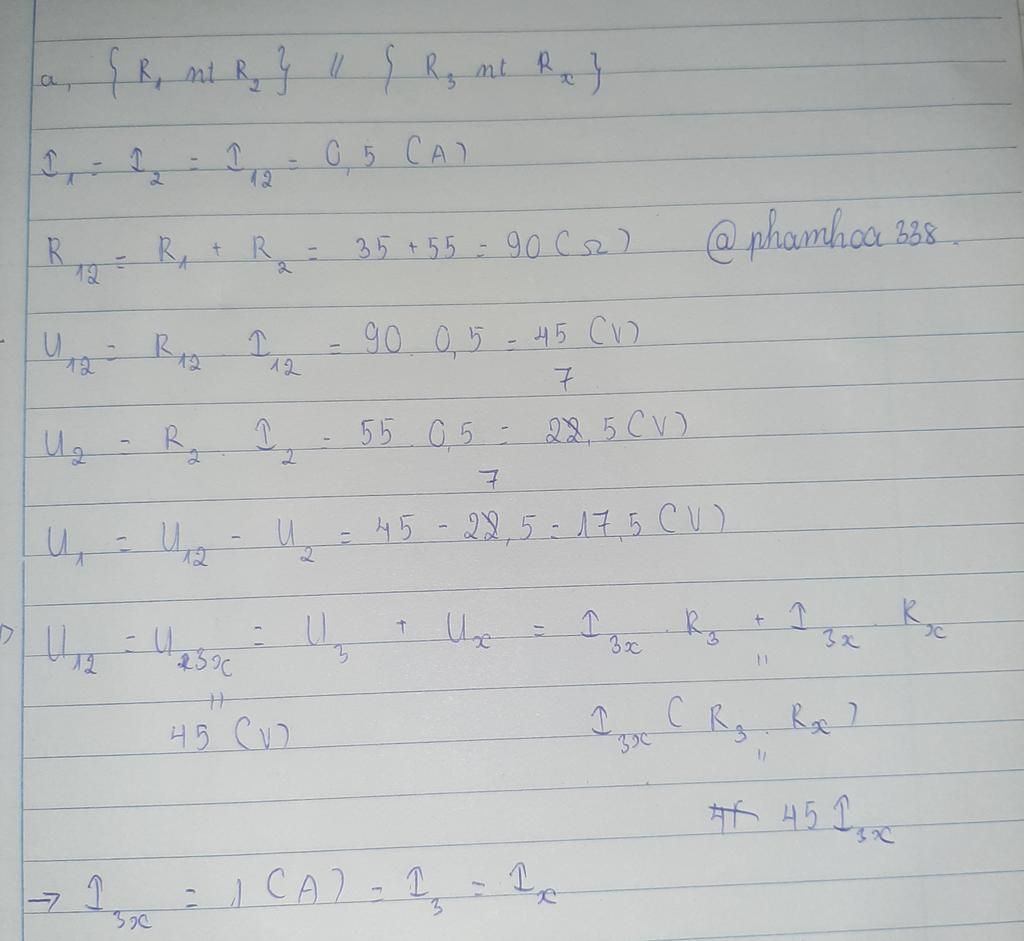 a, { R₁ nt R₂ } // { R₃ nt Rₓ }
I₁ = I₂ = I₁₂ = 0,5 (A)
R₁₂ = R₁ + R₂ = 35 + 55 = 90 (Ω) @phamhoa338.
U₁₂ = R₁₂ . I₁₂ = 90 . 0,5 = 45 (V)
7
U₂ = R₂ . I₂ = 55 . 0,5 = 22,5 (V)
7
U₁ = U₁₂ - U₂ = 45 - 22,5 = 17,5 (V)
U₁₂ = U₃ₓ = U₃ + Uₓ = I₃ₓ . R₃ + I₃ₓ . Rₓ
" "
45 (V) I₃ₓ ( R₃ . Rₓ )
"
45 I₃ₓ
→ I₃ₓ = 1 (A) = I₃ = Iₓ